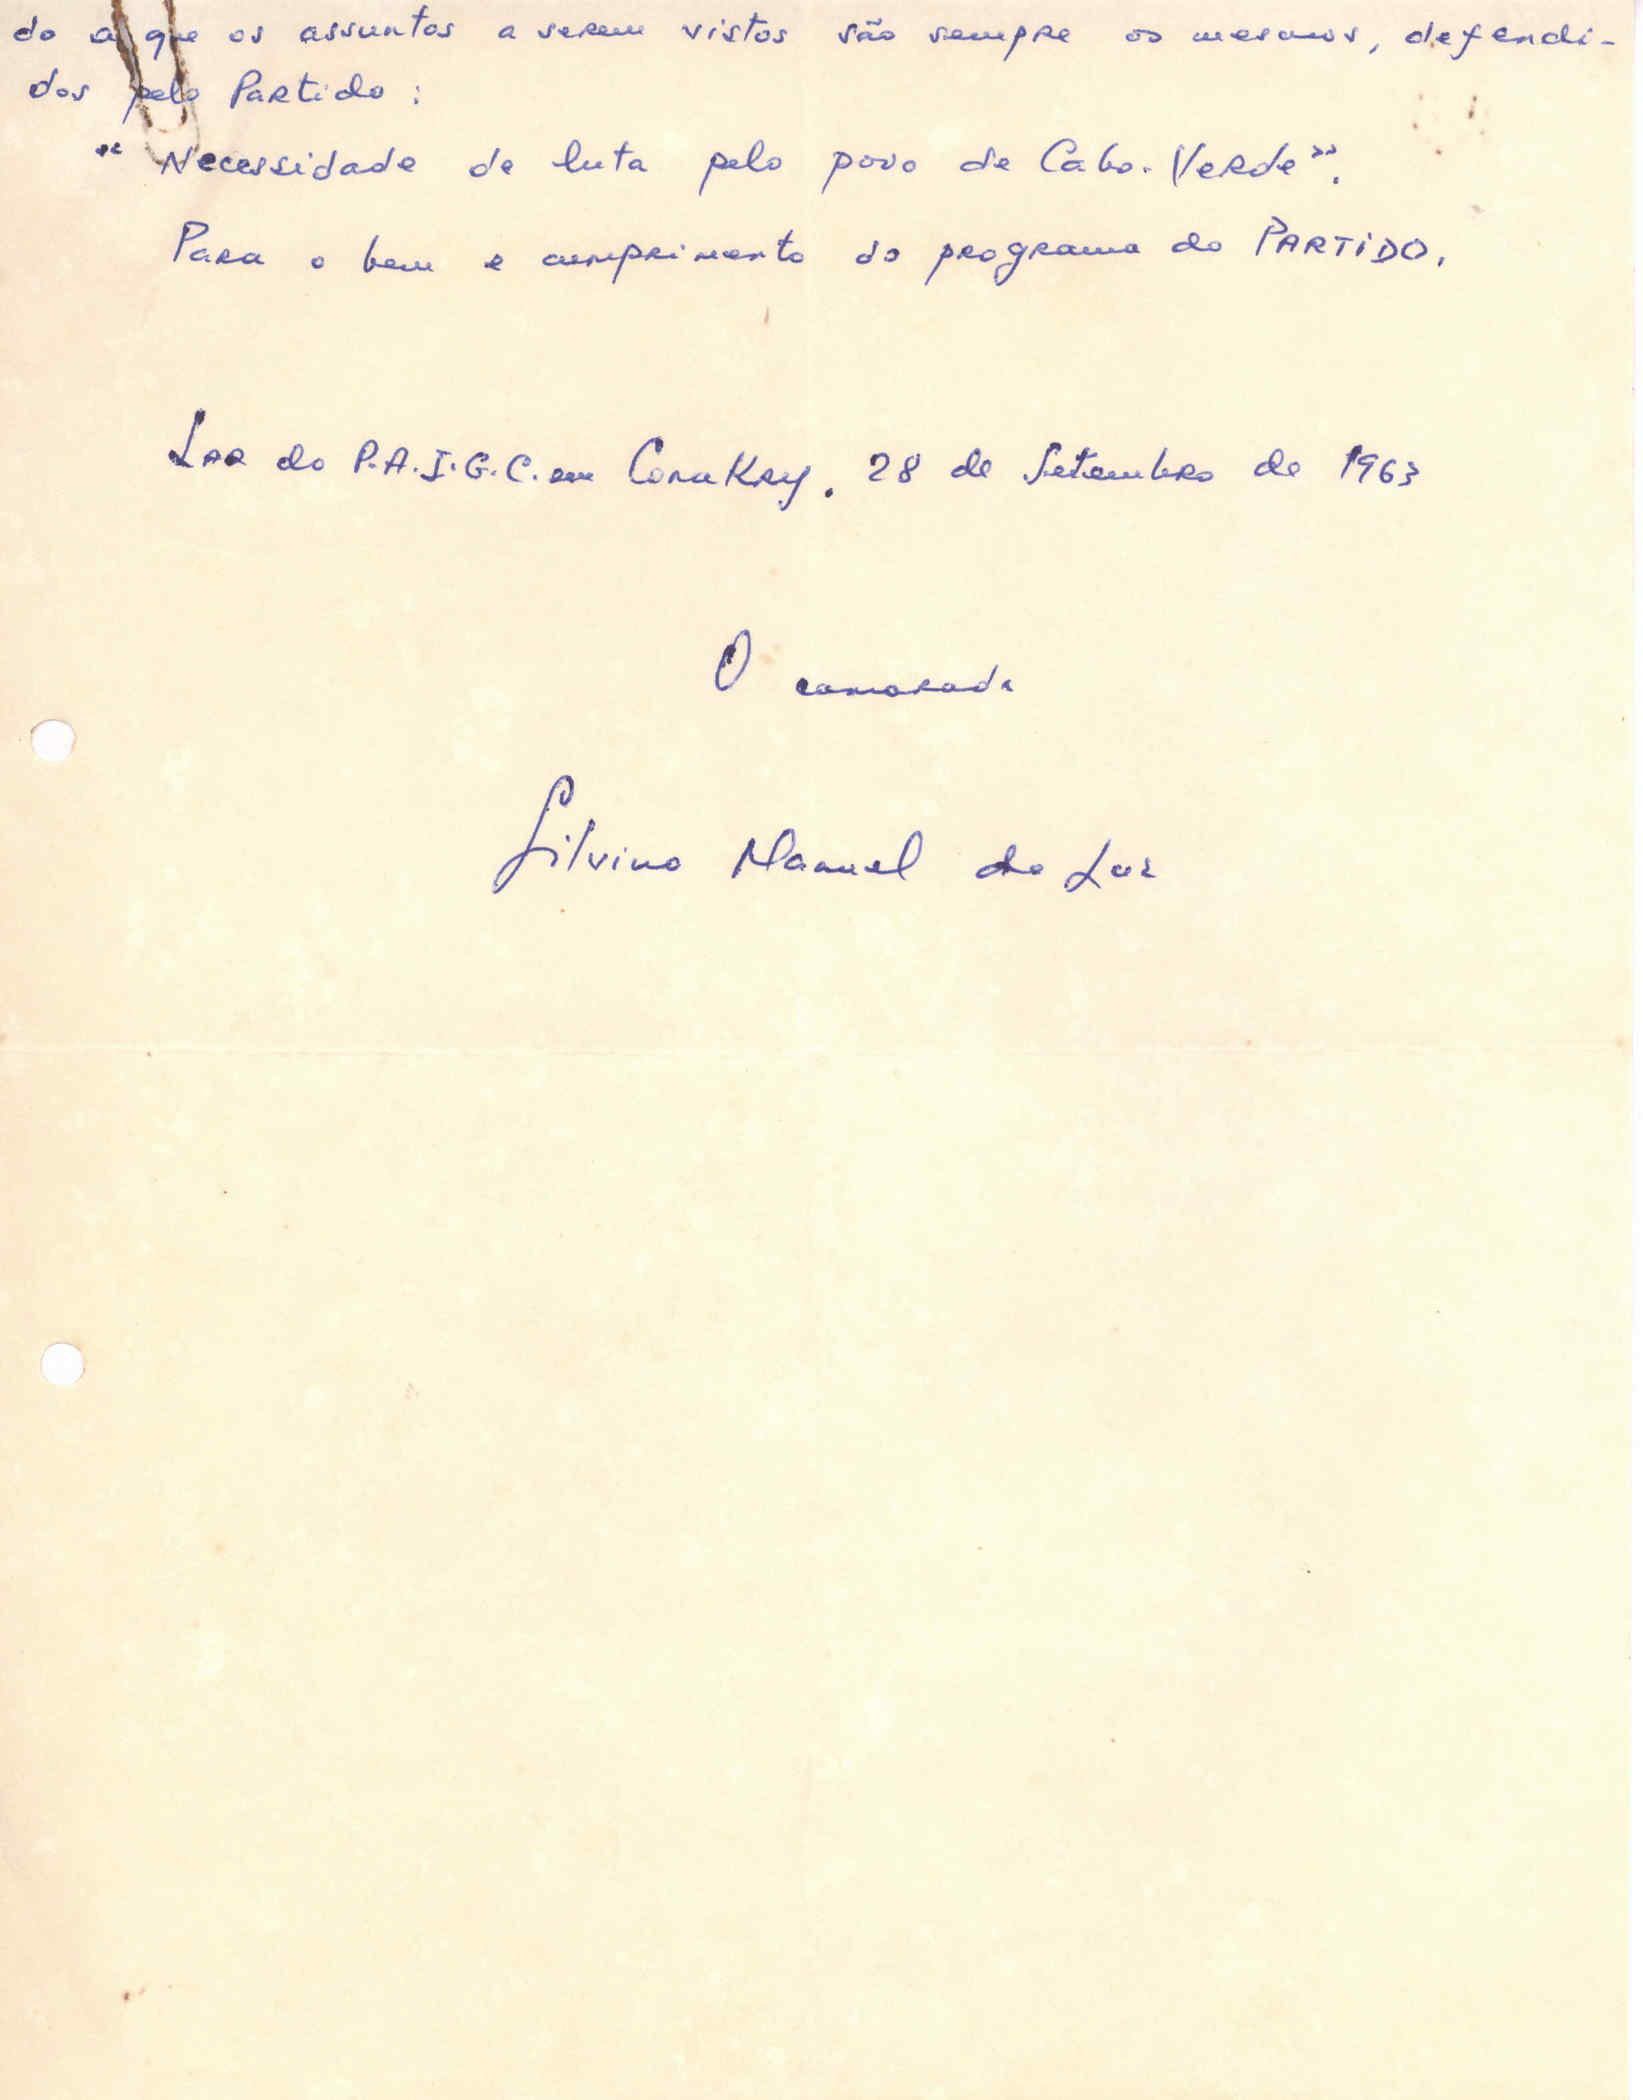 do a que os assuntos a serem vistos são sempre os mesmos, defendi-
dos pelo Partido:
"Necessidade de luta pelo povo de Cabo-Verde".
Para o bem e cumprimento do programa do PARTIDO.
Lar do P.A.I.G.C. em Conakry. 28 de Setembro de 1963
O camarada
Silvino Manuel da Luz